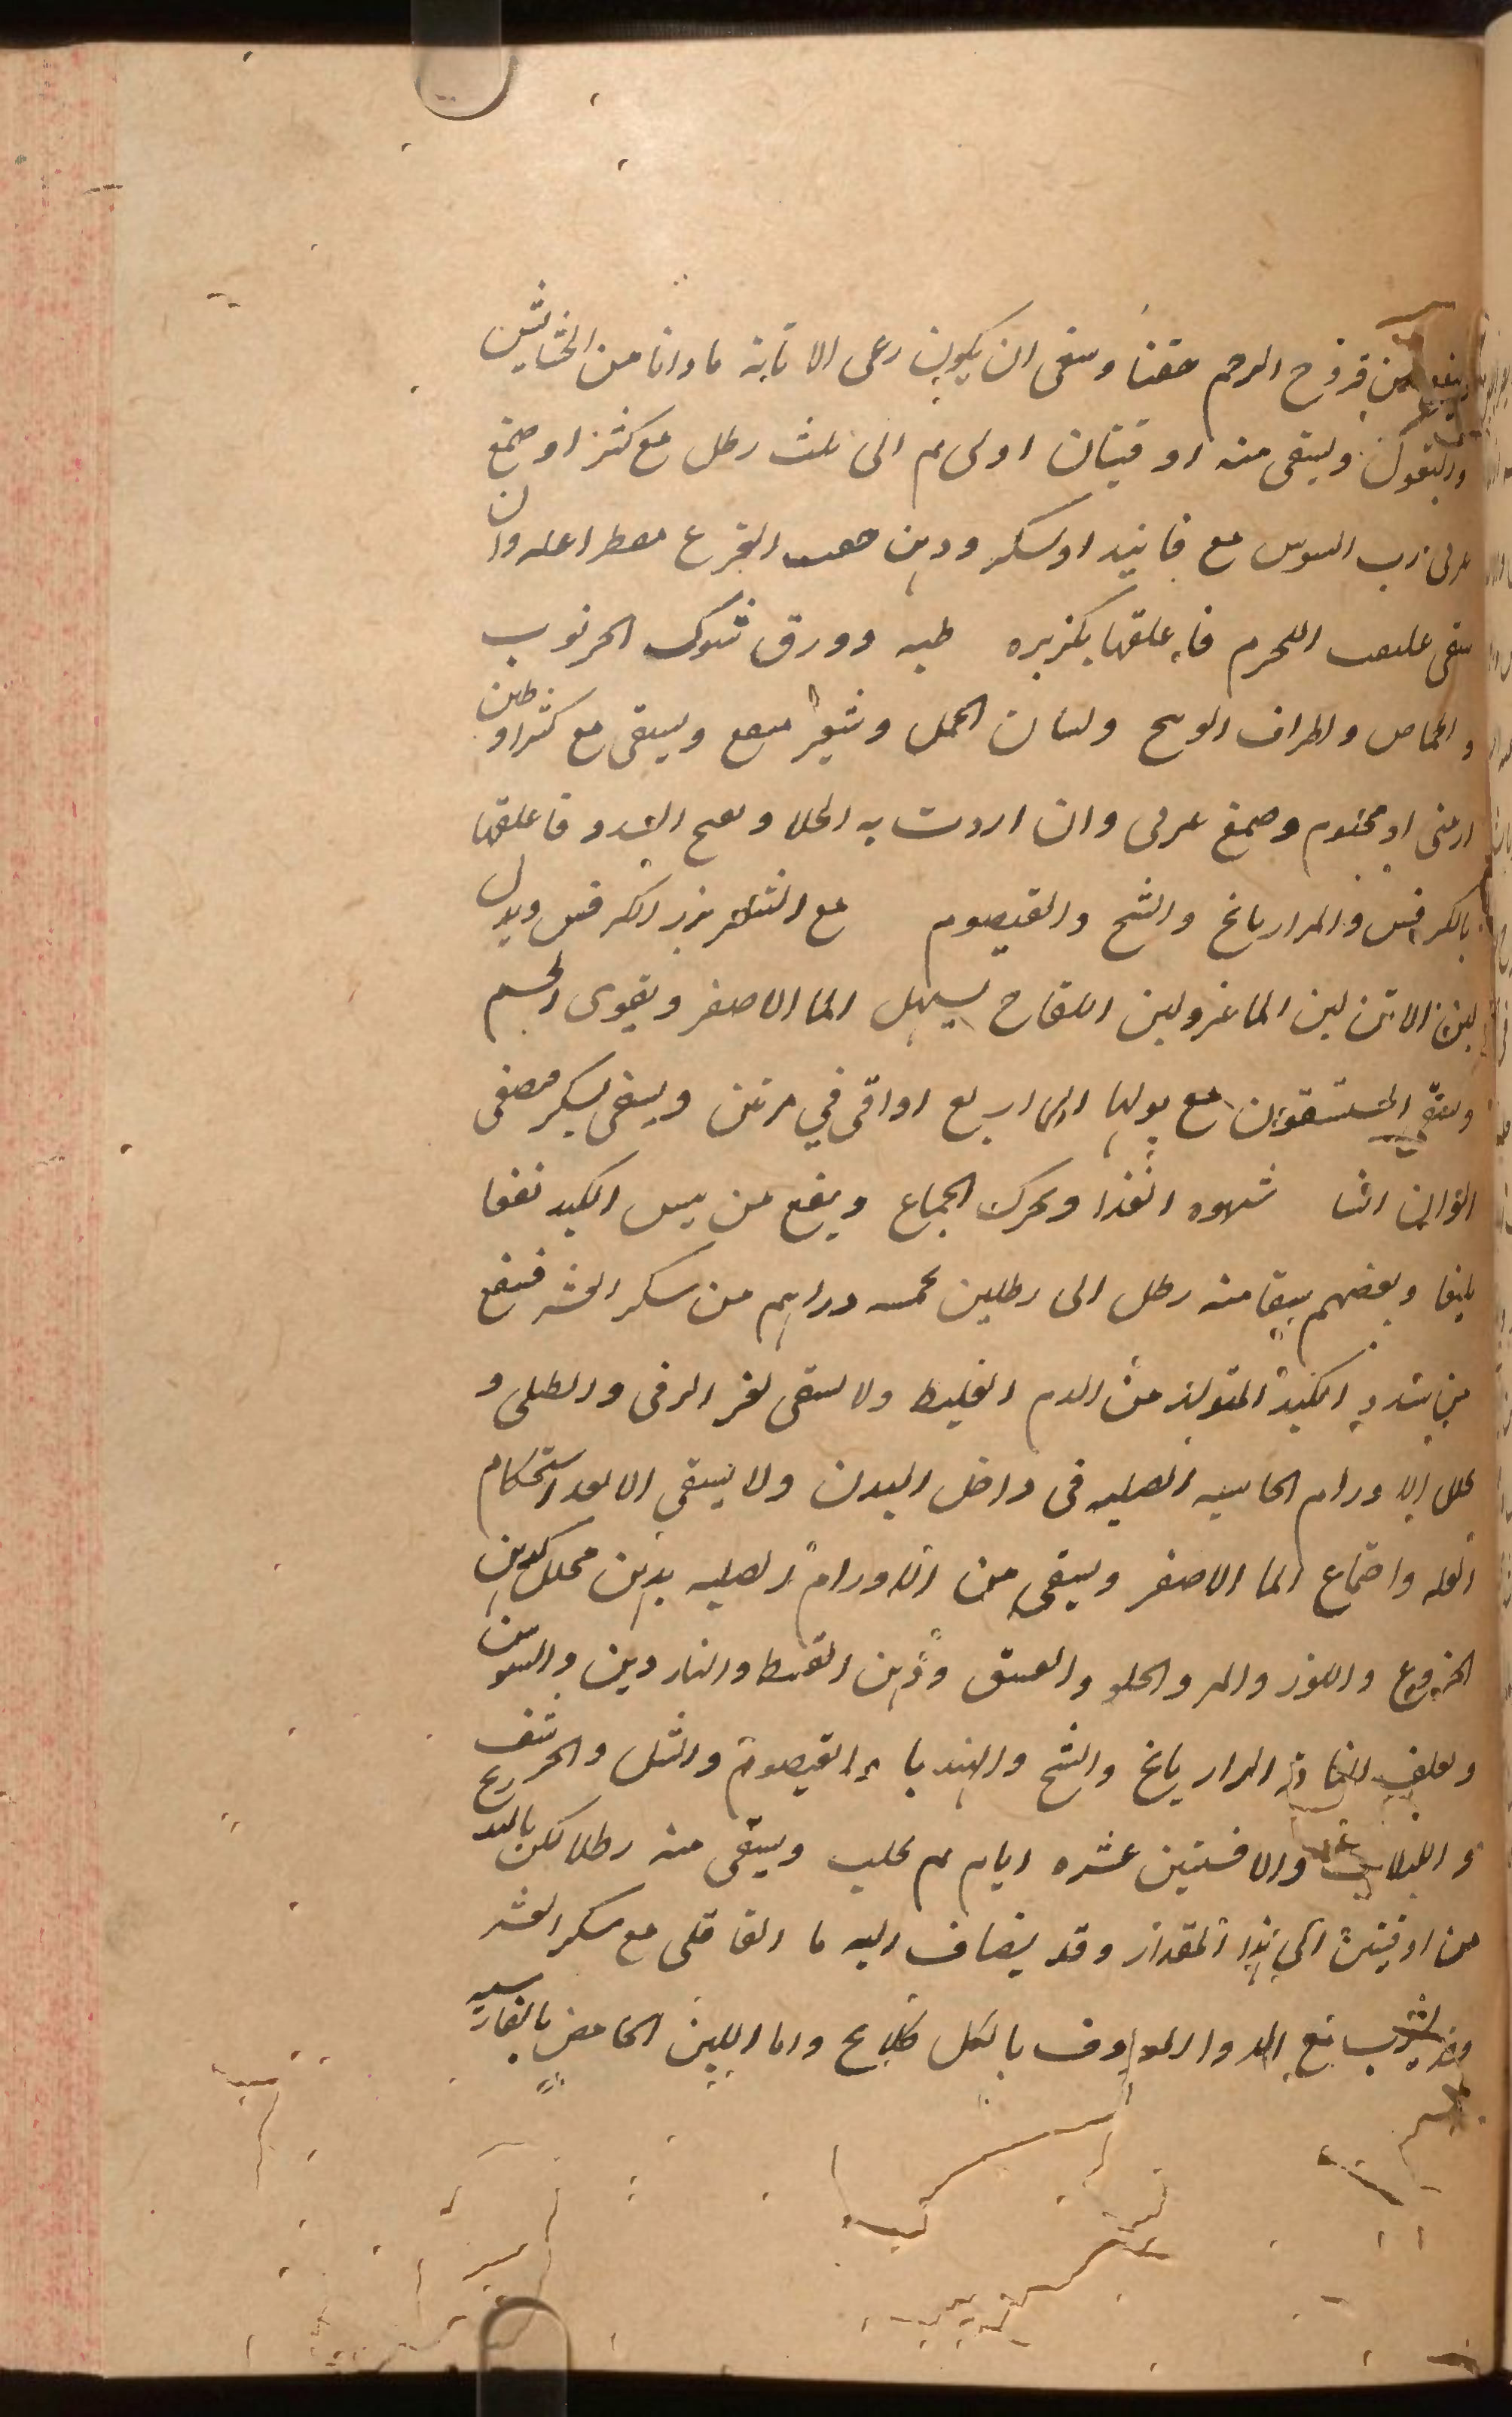 وينفع من قروح الرحم حقنا وسقى ان يكون رعى الاتانه ماوانا من الخشايش
والبقول ويسقى منه اوقيتان اولى ثم الى ثلث رطل مع كثيرا وصمغ
عربى ورب السوس مع فانيد اوسكر ودهن حب القرع مقطرا عليه وان
سقى اللحرم فاعلقها بكزبره طبه وورق شوك الخرنوب
والحماض واطراف الوسج ولسان الحمل وشعير منقع ويسقى مع كثيرا وطين
ارمنى او مختوم وصمغ عربى وان اردت به الجلا وفتح السدد فاعلقها
بالكرفس والرازيانج والشح والقيصوم مع بزر الكرفس وبدل
لبن الاتن لبن الماعز ولبن اللقاح يسهل الما الاصفر ويقوى الجسم
ويسقى المستسقون مع بولها اربع اواقى في مرتين ويسقى بسكر مصفى
الوان اثنا شهوه الغذا ويحرك الجماع وينفع من يبس الكبد نفعا
بليغا وبعضهم يسقا منه رطل الى رطلين بخمسه دراهم من سكر العشر فينفع
من سدد الكبد المتولد من الدم الغليظ ولا يسقى لغير الزقى والطبلى و
يحلل الاورام الجاسيه الصلبه فى داخل البدن ولا يسقى الا بعد استحكام
العله واجتماع الما الاصفر ويسقى من الاورام الصلبه بدهن محلل كدهن
الخروع واللوز والمر والحلو والفستق ودهن القسط والناردين والسوسن
ويعلف الناقه الرازيانج والشح والهندبا والقيصوم والشل والحرشف
و اللبلاب والافسنتين عشره ايام ثم يحلب ويسقى منه رطلا لكن بالتدريج
من اوقيتين الى هذا المقدار وقد يضاف اليه ما القاقلى مع سكر العشر
وقد يشرب مع الدوا المعروف بالكلكلانج واما اللبن الحامض بالفارسيه